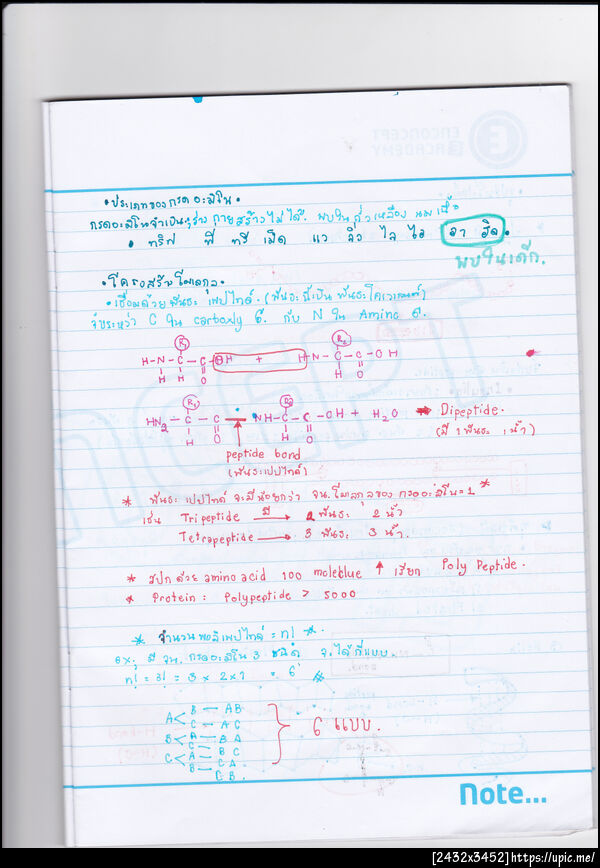 • ประเภทของกรดอะมิโน
กรดอะมิโนจำเป็น: ร่างกายสร้างไม่ได้. พบในถั่วเหลือง นม เนื้อ
• ทริฟ ฟี ทรี เม็ด แว ลิว ไล ไอ อา ฮิด.
พบในเด็ก.
• โครงสร้างโมเลกุล
• เชื่อมด้วยพันธะ เปปไทด์. (พันธะนี้เป็น พันธะโคเวเลนต์)
C ใน carboxly กับ N ใน Amino
R₁ R₂
H-N-C-C-OH + H-N-C-C-OH
H H O H O
R₁ R₂
HN₂-C-C-NH-C-C-OH + H₂O → Dipeptide.
H O H O (มี 1 พันธะ 1 น้ำ)
peptide bond
(พันธะเปปไทด์)
* พันธะเปปไทด์ จะมีน้อยกว่า จน.โมเลกุลของ กรดอะมิโน = 1 *
เช่น Tripeptide มี → 2 พันธะ 2 น้ำ
Tetrapeptide → 3 พันธะ 3 น้ำ.
* ด้วย amino acid 100 moleblue ↑ เรียก Poly Peptide.
* Protein : Polypeptide > 5000
* จำนวนพอลิเปปไทด์ = n! *
ex; มี จน. กรดอะมิโน 3 ชนิด จะได้กี่แบบ.
n! = 3! = 3 × 2 × 1 = 6 #
A < B — AB
C — AC
B < A — BA
C — BC
C < A — CA
B — CB
6 แบบ.
Note...
ENCONCEPT
E ACADEMY
[2432x3452]https://upic.me/